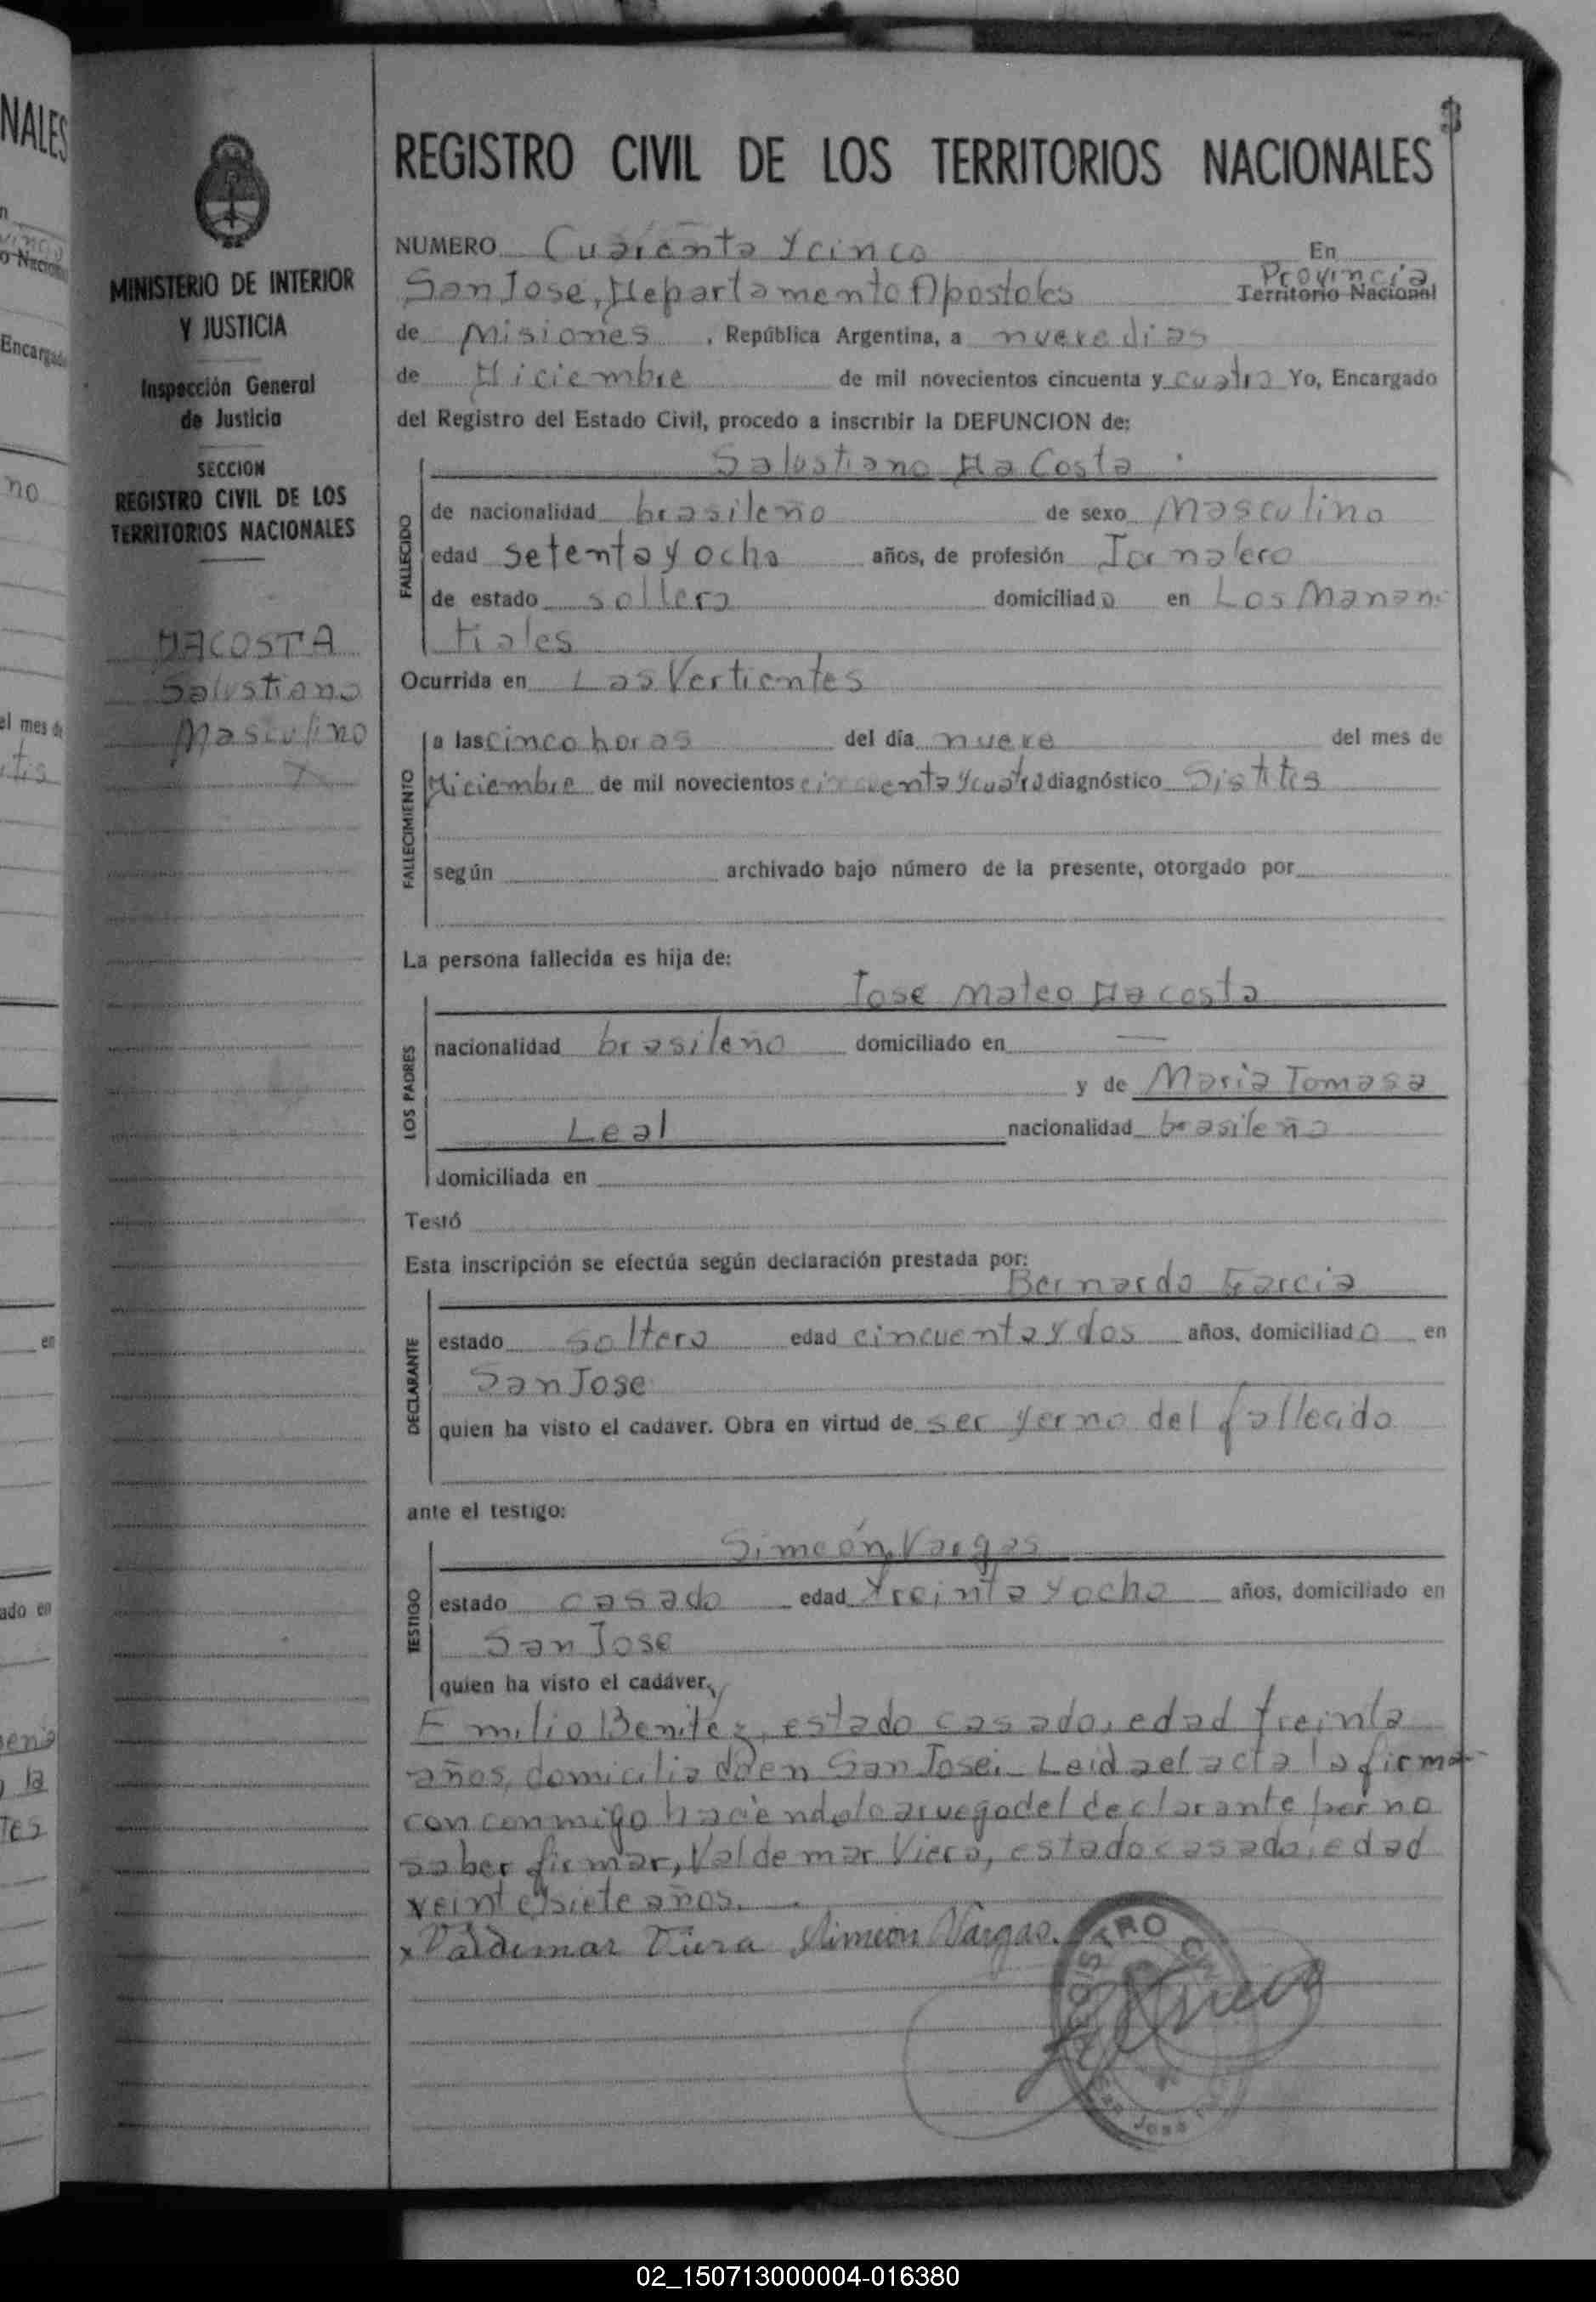 REGISTRO CIVIL DE LOS TERRITORIOS NACIONALES
MINISTERIO DE INTERIOR
Y JUSTICIA
Inspección General
de Justicia
SECCION
REGISTRO CIVIL DE LOS
TERRITORIOS NACIONALES
DACOSTA
Salustiano
Masculino
NUMERO Cuarenta y cinco En
San Jose, Departamento Apostoles Provincia Territorio Nacional
de Misiones, República Argentina, a nueve dias
de Diciembre de mil novecientos cincuenta y cuatro Yo, Encargado
del Registro del Estado Civil, procedo a inscribir la DEFUNCION de:
Salustiano Da Costa
FALLECIDO
de nacionalidad brasileño de sexo Masculino
edad setenta y ocho años, de profesión Jornalero
de estado soltero domiciliado en Los Manan
tiales
Ocurrida en Las Vertientes
FALLECIMIENTO
a las cinco horas del día nueve del mes de
Diciembre de mil novecientos cincuenta y cuatro diagnóstico Sistites
según archivado bajo número de la presente, otorgado por
La persona fallecida es hija de:
Jose Mateo Da costa
LOS PADRES
nacionalidad brasileño domiciliado en —
y de Maria Tomasa
Leal nacionalidad brasileña
domiciliada en
Testó
Esta inscripción se efectúa según declaración prestada por:
Bernardo Garcia
DECLARANTE
estado soltero edad cincuenta y dos años, domiciliado en
San Jose
quien ha visto el cadaver. Obra en virtud de ser yerno del fallecido
ante el testigo:
Simeón Vargas
TESTIGO
estado casado edad treinta y ocho años, domiciliado en
San Jose
quien ha visto el cadáver,
Emilio Benitez, estado casado, edad treinta
años, domiciliado en San Jose. Leida el acta la firma
con conmigo haciendolo a ruego del declarante por no
saber firmar, Valdemar Viera, estado casado, edad
veintesiete años.
x Valdemar Viera Simeon Vargas.
REGISTRO CIVIL
San Jose
02_150713000004-016380